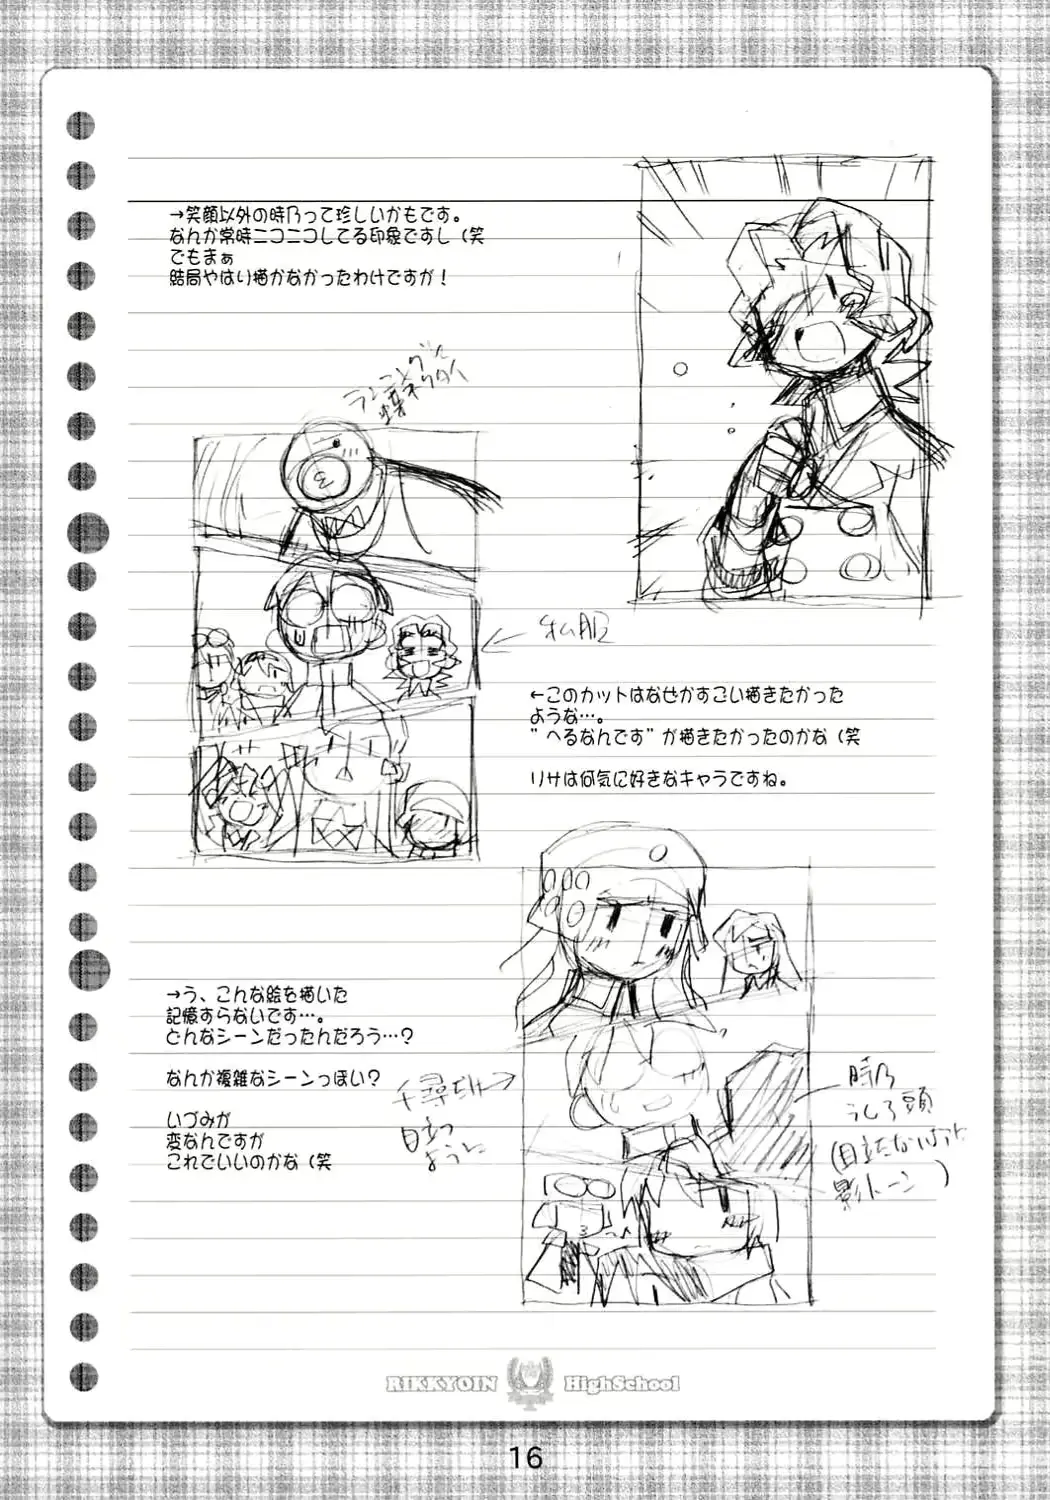 →笑顔以外の時乃って珍しいかもです。
なんか常時ニコニコしてる印象ですし（笑
でもまぁ
結局やはり描かなかったわけですが！
ランニングに
蝶ネクタイ
私服
←このカットはなぜかすごい描きたかった
ような…。
”へるなんです”が描きたかったのかな（笑
リサは何気に好きなキャラですね。
→う、こんな絵を描いた
記憶すらないです…。
どんなシーンだったんだろう…？
なんか複雑なシーンっぽい？
いづみが
変なんですが
これでいいのかな（笑
千尋だけ
目立つ
ように
時乃
うしろ頭
(目立たないように
影トーン)
RIKKYOIN HighSchool
16